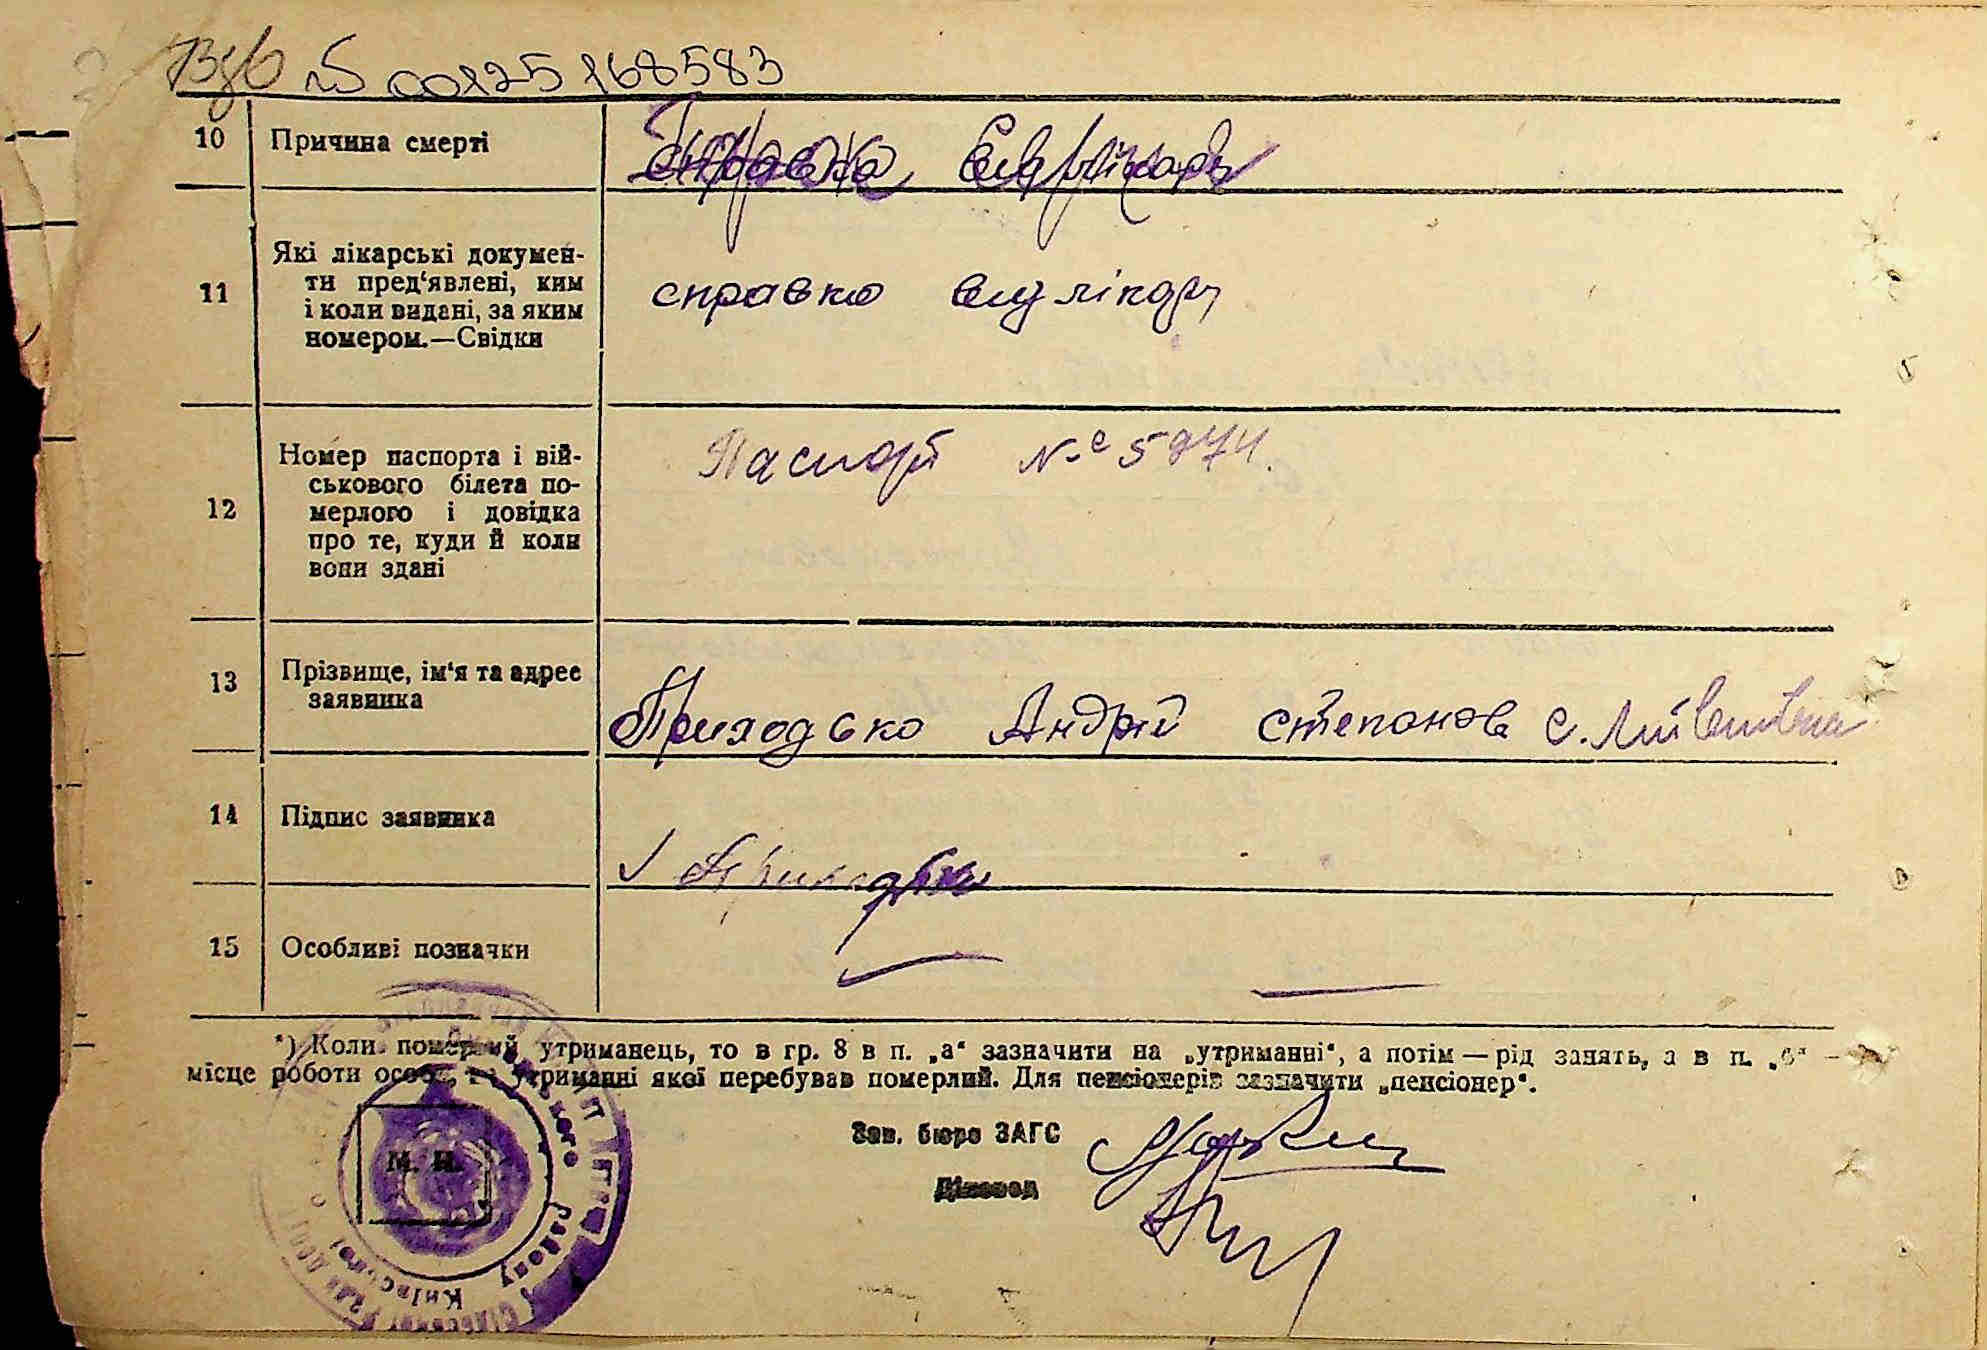 № 00125168583
10 Причина смерті
11 Які лікарські докумен-
ти пред‘явлені, ким
і коли видані, за яким
номером.—Свідки
справка лікар
12 Номер паспорта і вій-
ськового білета по-
мерлого і довідка
про те, куди й коли
вони здані
Паспорт № 5974.
13 Прізвище, ім‘я та адрес
заявника
Приходько Андрій Степанов с.
14 Підпис заявника
15 Особливі позначки
*) Коли померлий утриманець, то в гр. 8 в п. „а“ зазначити на „утриманні“, а потім — рід занять, а в п. „б“ —
місце роботи особи, на утриманні якої перебував померлий. Для пенсіонерів зазначити „пенсіонер“.
М. П.
Зав. бюро ЗАГС
Діловод
району Київської